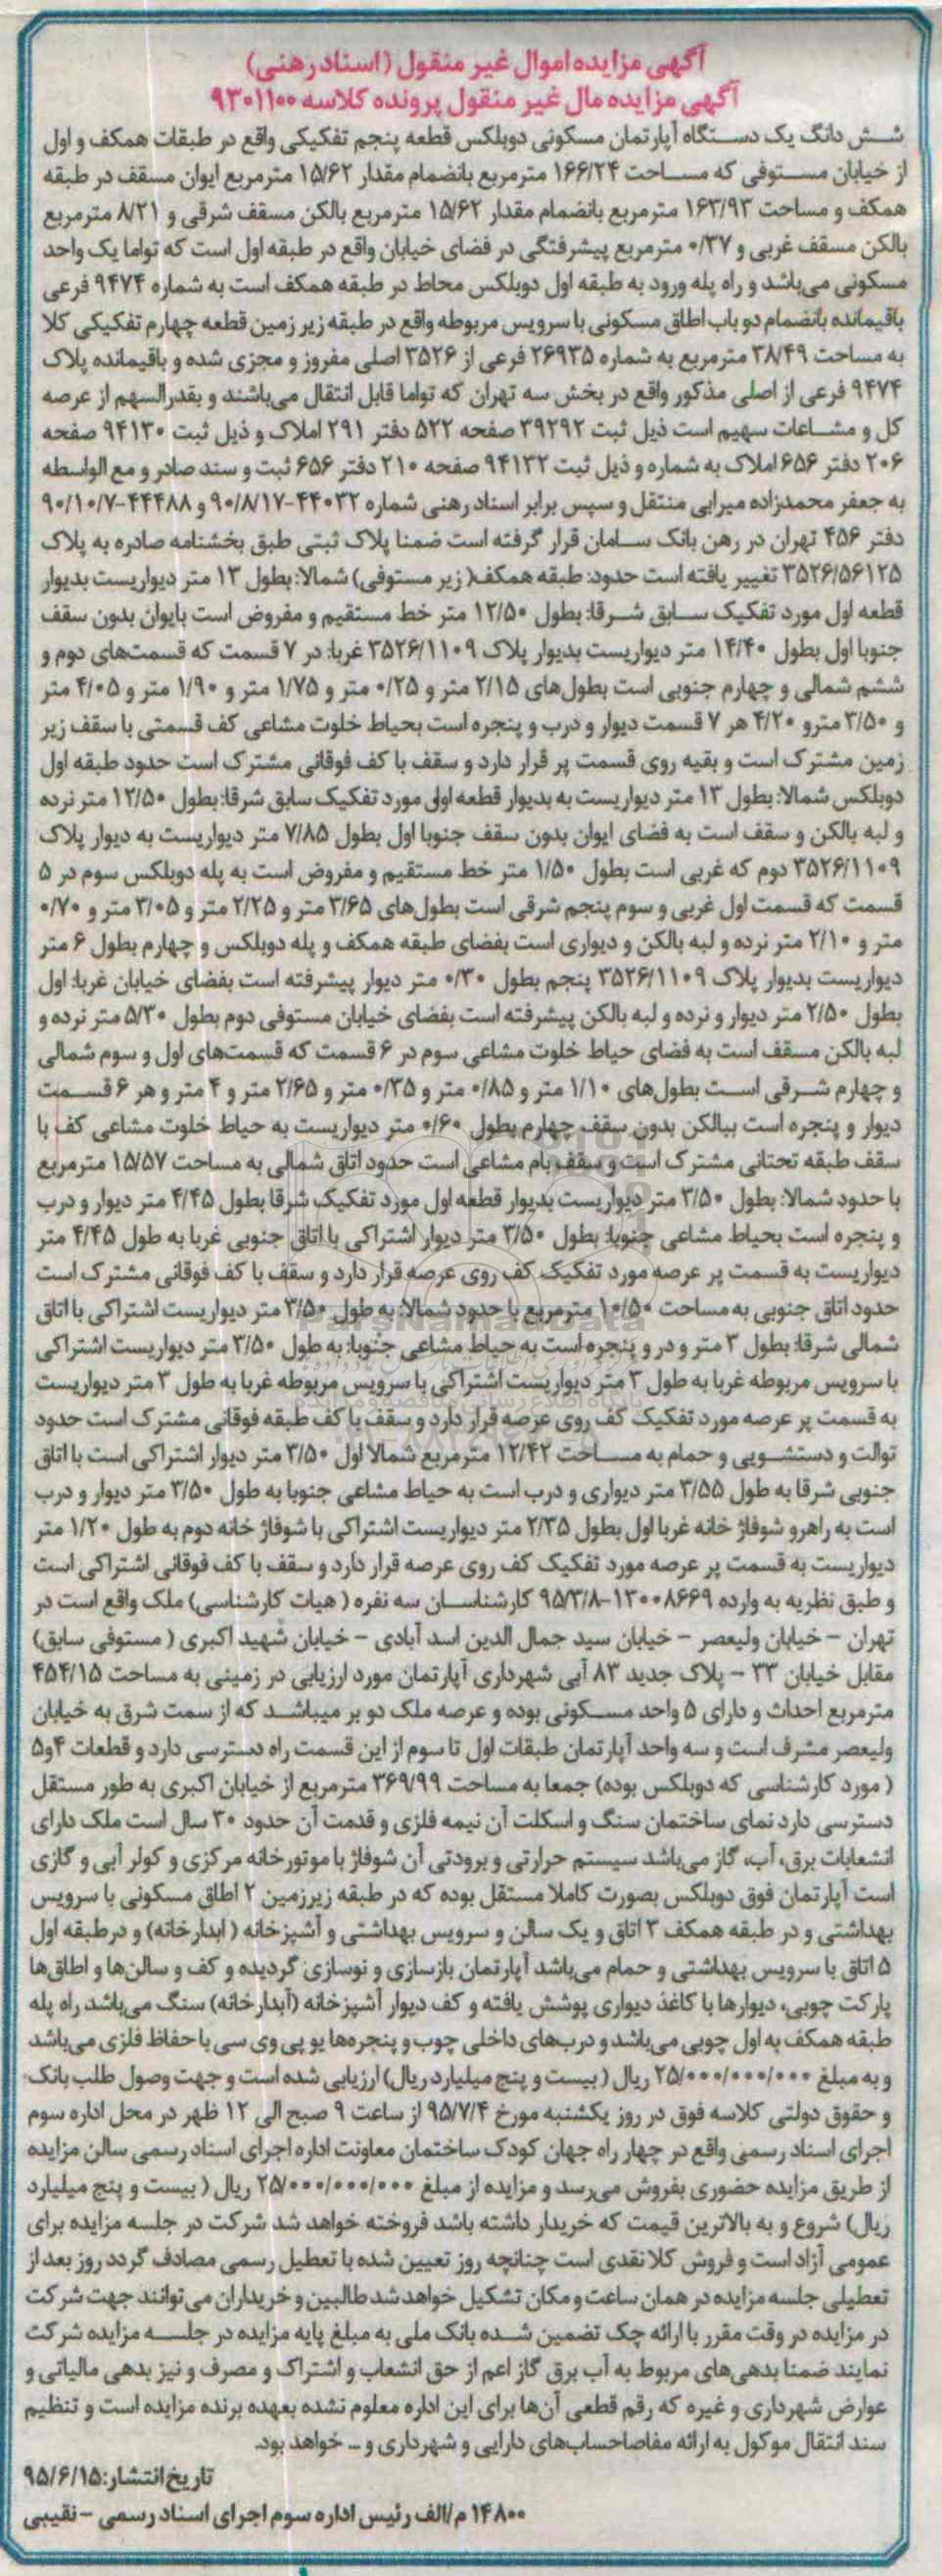 آگهی مزایده اموال غیر منقول (اسناد رهنی)
آگهی مزایده مال غیر منقول پرونده کلاسه ۹۳۰۱۱۰۰
شش دانگ یک دستگاه آپارتمان مسکونی دوبلکس قطعه پنجم تفکیکی واقع در طبقات همکف و اول
از خیابان مستوفی که مساحت ۱۶۶/۲۴ مترمربع بانضمام مقدار ۱۵/۶۲ مترمربع ایوان مسقف در طبقه
همکف و مساحت ۱۶۳/۹۳ مترمربع بانضمام مقدار ۱۵/۶۲ مترمربع بالکن مسقف شرقی و ۸/۲۱ مترمربع
بالکن مسقف غربی و ۰/۳۷ مترمربع پیشرفتگی در فضای خیابان واقع در طبقه اول است که تواما یک واحد
مسکونی می‌باشد و راه پله ورود به طبقه اول دوبلکس محاط در طبقه همکف است به شماره ۹۴۷۴ فرعی
باقیمانده بانضمام دو باب اطاق مسکونی با سرویس مربوطه واقع در طبقه زیر زمین قطعه چهارم تفکیکی کلا
به مساحت ۳۸/۴۹ مترمربع به شماره ۲۶۹۳۵ فرعی از ۳۵۲۶ اصلی مفروز و مجزی شده و باقیمانده پلاک
۹۴۷۴ فرعی از اصلی مذکور واقع در بخش سه تهران که تواما قابل انتقال می‌باشند و بقدرالسهم از عرصه
کل و مشاعات سهیم است ذیل ثبت ۳۹۲۹۲ صفحه ۵۲۲ دفتر ۲۹۱ املاک و ذیل ثبت ۹۴۱۳۰ صفحه
۲۰۶ دفتر ۶۵۶ املاک به شماره و ذیل ثبت ۹۴۱۳۲ صفحه ۲۱۰ دفتر ۶۵۶ ثبت و سند صادر و مع الواسطه
به جعفر محمدزاده میرابی منتقل و سپس برابر اسناد رهنی شماره ۴۴۰۳۲-۹۰/۸/۱۷ و ۴۴۴۸۸-۹۰/۱۰/۷
دفتر ۴۵۶ تهران در رهن بانک سامان قرار گرفته است ضمنا پلاک ثبتی طبق بخشنامه صادره به پلاک
۳۵۲۶/۵۶۱۲۵ تغییر یافته است حدود: طبقه همکف( زیر مستوفی) شمالا: بطول ۱۳ متر دیواریست بدیوار
قطعه اول مورد تفکیک سابق شرقا: بطول ۱۲/۵۰ متر خط مستقیم و مفروض است بایوان بدون سقف
جنوبا اول بطول ۱۴/۴۰ متر دیواریست بدیوار پلاک ۳۵۲۶/۱۱۰۹ غربا: در ۷ قسمت که قسمت‌های دوم و
ششم شمالی و چهارم جنوبی است بطول‌های ۲/۱۵ متر و ۰/۲۵ متر و ۱/۷۵ متر و ۱/۹۰ متر و ۴/۰۵ متر
و ۳/۵۰ مترو ۴/۲۰ هر ۷ قسمت دیوار و درب و پنجره است بحیاط خلوت مشاعی کف قسمتی با سقف زیر
زمین مشترک است و بقیه روی قسمت پر قرار دارد و سقف با کف فوقانی مشترک است حدود طبقه اول
دوبلکس شمالا: بطول ۱۳ متر دیواریست به بدیوار قطعه اول مورد تفکیک سابق شرقا: بطول ۱۲/۵۰ متر نرده
و لبه بالکن و سقف است به فضای ایوان بدون سقف جنوبا اول بطول ۷/۸۵ متر دیواریست به دیوار پلاک
۳۵۲۶/۱۱۰۹ دوم که غربی است بطول ۱/۵۰ متر خط مستقیم و مفروض است به پله دوبلکس سوم در ۵
قسمت که قسمت اول غربی و سوم پنجم شرقی است بطول‌های ۳/۶۵ متر و ۲/۲۵ متر و ۳/۰۵ متر و ۰/۷۰
متر و ۲/۱۰ متر نرده و لبه بالکن و دیواری است بفضای طبقه همکف و پله دوبلکس و چهارم بطول ۶ متر
دیواریست بدیوار پلاک ۳۵۲۶/۱۱۰۹ پنجم بطول ۰/۳۰ متر دیوار پیشرفته است بفضای خیابان غربا: اول
بطول ۲/۵۰ متر دیوار و نرده و لبه بالکن پیشرفته است بفضای خیابان مستوفی دوم بطول ۵/۳۰ متر نرده و
لبه بالکن مسقف است به فضای حیاط خلوت مشاعی سوم در ۶ قسمت که قسمت‌های اول و سوم شمالی
و چهارم شرقی است بطول‌های ۱/۱۰ متر و ۰/۸۵ متر و ۰/۳۵ متر و ۲/۶۵ متر و ۴ متر و هر ۶ قسمت
دیوار و پنجره است ببالکن بدون سقف چهارم بطول ۰/۶۰ متر دیواریست به حیاط خلوت مشاعی کف با
سقف طبقه تحتانی مشترک است و سقف بام مشاعی است حدود اتاق شمالی به مساحت ۱۵/۵۷ مترمربع
با حدود شمالا: بطول ۳/۵۰ متر دیواریست بدیوار قطعه اول مورد تفکیک شرقا بطول ۴/۴۵ متر دیوار و درب
و پنجره است بحیاط مشاعی جنوبا: بطول ۳/۵۰ متر دیوار اشتراکی با اتاق جنوبی غربا به طول ۴/۴۵ متر
دیواریست به قسمت پر عرصه مورد تفکیک کف روی عرصه قرار دارد و سقف با کف فوقانی مشترک است
حدود اتاق جنوبی به مساحت ۱۰/۵۰ مترمربع با حدود شمالا: به طول ۳/۵۰ متر دیواریست اشتراکی با اتاق
شمالی شرقا: بطول ۳ متر و در و پنجره است به حیاط مشاعی جنوبا: به طول ۳/۵۰ متر دیواریست اشتراکی
با سرویس مربوطه غربا به طول ۳ متر دیواریست اشتراکی با سرویس مربوطه غربا به طول ۳ متر دیواریست
به قسمت پر عرصه مورد تفکیک کف روی عرصه قرار دارد و سقف با کف طبقه فوقانی مشترک است حدود
توالت و دستشویی و حمام به مساحت ۱۲/۴۲ مترمربع شمالا اول ۳/۵۰ متر دیوار اشتراکی است با اتاق
جنوبی شرقا به طول ۳/۵۵ متر دیواری و درب است به حیاط مشاعی جنوبا به طول ۳/۵۰ متر دیوار و درب
است به راهرو شوفاژ خانه غربا اول بطول ۲/۳۵ متر دیواریست اشتراکی با شوفاژ خانه دوم به طول ۱/۲۰ متر
دیواریست به قسمت پر عرصه مورد تفکیک کف روی عرصه قرار دارد و سقف با کف فوقانی اشتراکی است
و طبق نظریه به وارده ۱۳۰۰۸۶۶۹-۹۵/۳/۸ کارشناسان سه نفره ( هیات کارشناسی) ملک واقع است در
تهران – خیابان ولیعصر – خیابان سید جمال الدین اسد آبادی – خیابان شهید اکبری ( مستوفی سابق)
مقابل خیابان ۳۳ – پلاک جدید ۸۳ آبی شهرداری آپارتمان مورد ارزیابی در زمینی به مساحت ۴۵۴/۱۵
مترمربع احداث و دارای ۵ واحد مسکونی بوده و عرصه ملک دو بر میباشد که از سمت شرق به خیابان
ولیعصر مشرف است و سه واحد آپارتمان طبقات اول تا سوم از این قسمت راه دسترسی دارد و قطعات ۴و۵
( مورد کارشناسی که دوبلکس بوده) جمعا به مساحت ۳۶۹/۹۹ مترمربع از خیابان اکبری به طور مستقل
دسترسی دارد نمای ساختمان سنگ و اسکلت آن نیمه فلزی و قدمت آن حدود ۳۰ سال است ملک دارای
انشعابات برق، آب، گاز می‌باشد سیستم حرارتی و برودتی آن شوفاژ با موتورخانه مرکزی و کولر آبی و گازی
است آپارتمان فوق دوبلکس بصورت کاملا مستقل بوده که در طبقه زیرزمین ۲ اطاق مسکونی با سرویس
بهداشتی و در طبقه همکف ۳ اتاق و یک سالن و سرویس بهداشتی و آشپزخانه ( ابدارخانه) و درطبقه اول
۵ اتاق با سرویس بهداشتی و حمام می‌باشد آپارتمان بازسازی و نوسازی گردیده و کف و سالن‌ها و اطاق‌ها
پارکت چوبی، دیوارها با کاغذ دیواری پوشش یافته و کف دیوار آشپزخانه (آبدارخانه) سنگ می‌باشد راه پله
طبقه همکف به اول چوبی می‌باشد و درب‌های داخلی چوب و پنجره‌ها یو پی وی سی با حفاظ فلزی می‌باشد
و به مبلغ ۲۵/۰۰۰/۰۰۰/۰۰۰ ریال ( بیست و پنج میلیارد ریال) ارزیابی شده است و جهت وصول طلب بانک
و حقوق دولتی کلاسه فوق در روز یکشنبه مورخ ۹۵/۷/۴ از ساعت ۹ صبح الی ۱۲ ظهر در محل اداره سوم
اجرای اسناد رسمی واقع در چهار راه جهان کودک ساختمان معاونت اداره اجرای اسناد رسمی سالن مزایده
از طریق مزایده حضوری بفروش می‌رسد و مزایده از مبلغ ۲۵/۰۰۰/۰۰۰/۰۰۰ ریال ( بیست و پنج میلیارد
ریال) شروع و به بالاترین قیمت که خریدار داشته باشد فروخته خواهد شد شرکت در جلسه مزایده برای
عمومی آزاد است و فروش کلا نقدی است چنانچه روز تعیین شده با تعطیل رسمی مصادف گردد روز بعد از
تعطیلی جلسه مزایده در همان ساعت و مکان تشکیل خواهد شد طالبین و خریداران می‌توانند جهت شرکت
در مزایده در وقت مقرر با ارائه چک تضمین شده بانک ملی به مبلغ پایه مزایده در جلسه مزایده شرکت
نمایند ضمنا بدهی‌های مربوط به آب برق گاز اعم از حق انشعاب و اشتراک و مصرف و نیز بدهی مالیاتی و
عوارض شهرداری و غیره که رقم قطعی آن‌ها برای این اداره معلوم نشده بعهده برنده مزایده است و تنظیم
سند انتقال موکول به ارائه مفاصاحساب‌های دارایی و شهرداری و ... خواهد بود.
تاریخ انتشار: ۹۵/۶/۱۵
۱۴۸۰۰ م/الف رئیس اداره سوم اجرای اسناد رسمی – نقیبی
ParsNamadData